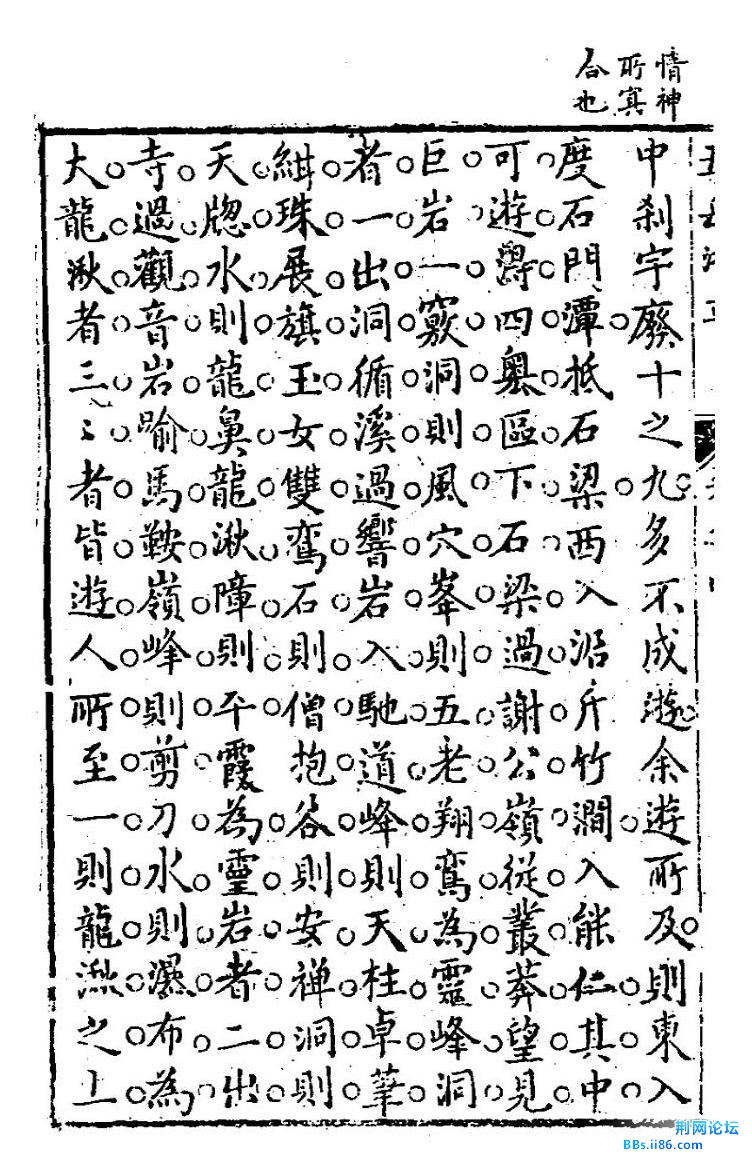 情神
所寘
合也
中刹宇廢十之九多不成遊余遊所及則東入
度石門潭抵石梁西入沿斤竹澗入能仁其中
可遊得四奧區下石梁過謝公嶺從叢莽望見
巨岩一竅洞則風穴峯則五老翔鸞為靈峰洞
者一出洞循溪過響岩入馳道峰則天柱卓筆
紺珠展旗玉女雙鸞石則僧抱谷則安禅洞則
天牕水則龍鼻龍湫障則平霞為靈岩者二出
寺過觀音岩踰馬鞍嶺峰則剪刀水則瀑布為
大龍湫者三〻者皆遊人所至一則龍湫之上
荆网论坛
BBs.ii86.com